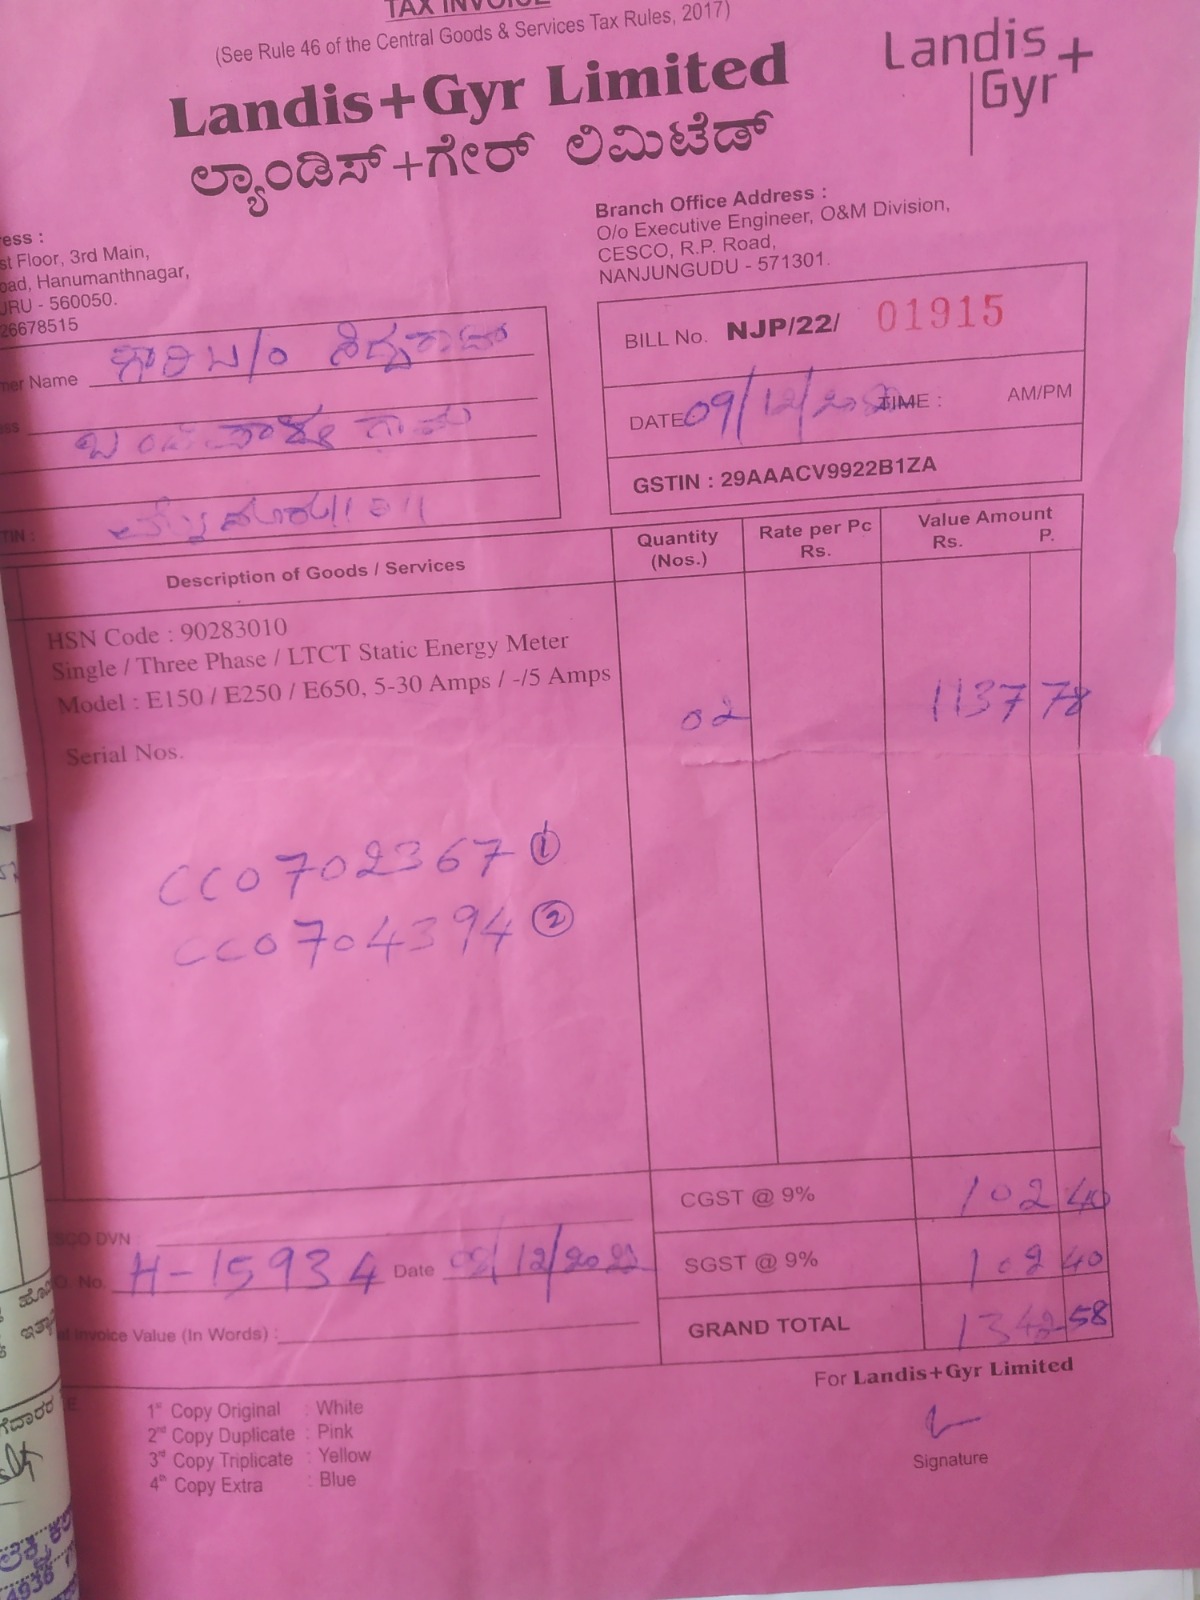 TAX INVOICE
(See Rule 46 of the Central Goods & Services Tax Rules, 2017)
Landis+Gyr Limited
ಲ್ಯಾಂಡಿಸ್+ಗೇರ್ ಲಿಮಿಟೆಡ್
Landis+
Gyr
ess :
st Floor, 3rd Main,
oad, Hanumanthnagar,
URU - 560050.
26678515
Branch Office Address :
O/o Executive Engineer, O&M Division,
CESCO, R.P. Road,
NANJUNGUDU - 571301.
mer Name
ess
TIN :
BILL No. NJP/22/ 01915
DATE: 09/12/ TIME : AM/PM
GSTIN : 29AAACV9922B1ZA
Description of Goods / Services
Quantity (Nos.)
Rate per Pc Rs.
Value Amount Rs. P.
HSN Code : 90283010
Single / Three Phase / LTCT Static Energy Meter
Model : E150 / E250 / E650, 5-30 Amps / -/5 Amps
02 1137 78
Serial Nos.
CC0702367 ①
CC0704394 ②
CGST @ 9% 102 40
SCO DVN
SGST @ 9% 102 40
O. No. H-15934 Date 09/12/2022
GRAND TOTAL 1342 58
al Invoice Value (In Words) :
For Landis+Gyr Limited
1st Copy Original : White
2nd Copy Duplicate : Pink
3rd Copy Triplicate : Yellow
4th Copy Extra : Blue
Signature